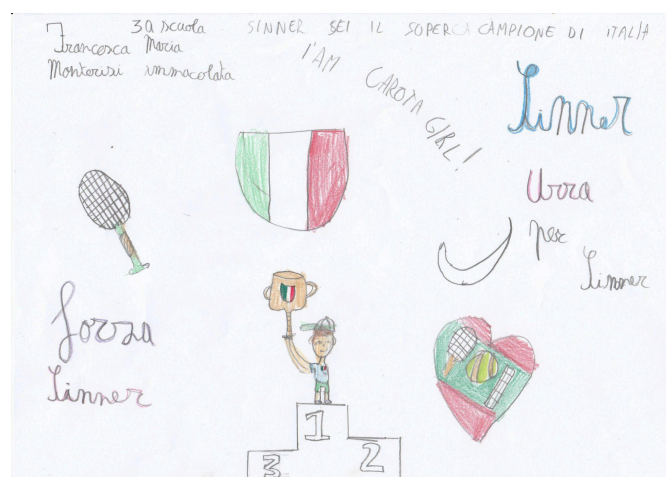 3a scuola
Francesca Maria
Monterisi immacolata
SINNER SEI IL SUPER CAMPIONE DI ITALIA
I'AM CAROTA GIRL!
Sinner
Urra
per
Sinner
forza
Sinner
1
2
3